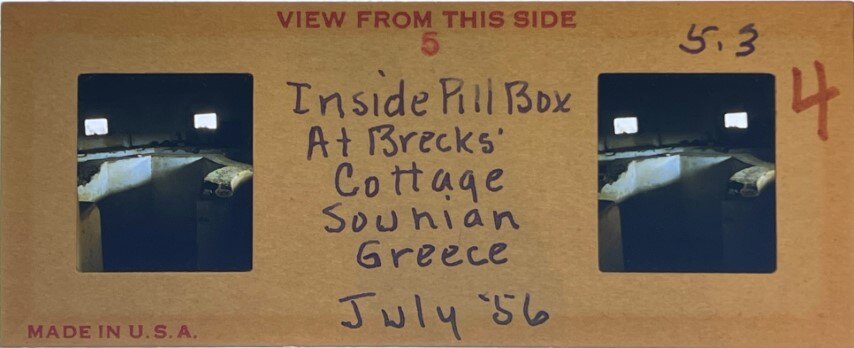 VIEW FROM THIS SIDE
5
5.3
4
Inside Pill Box
At Brecks'
Cottage
Sounian
Greece
July '56
MADE IN U.S.A.